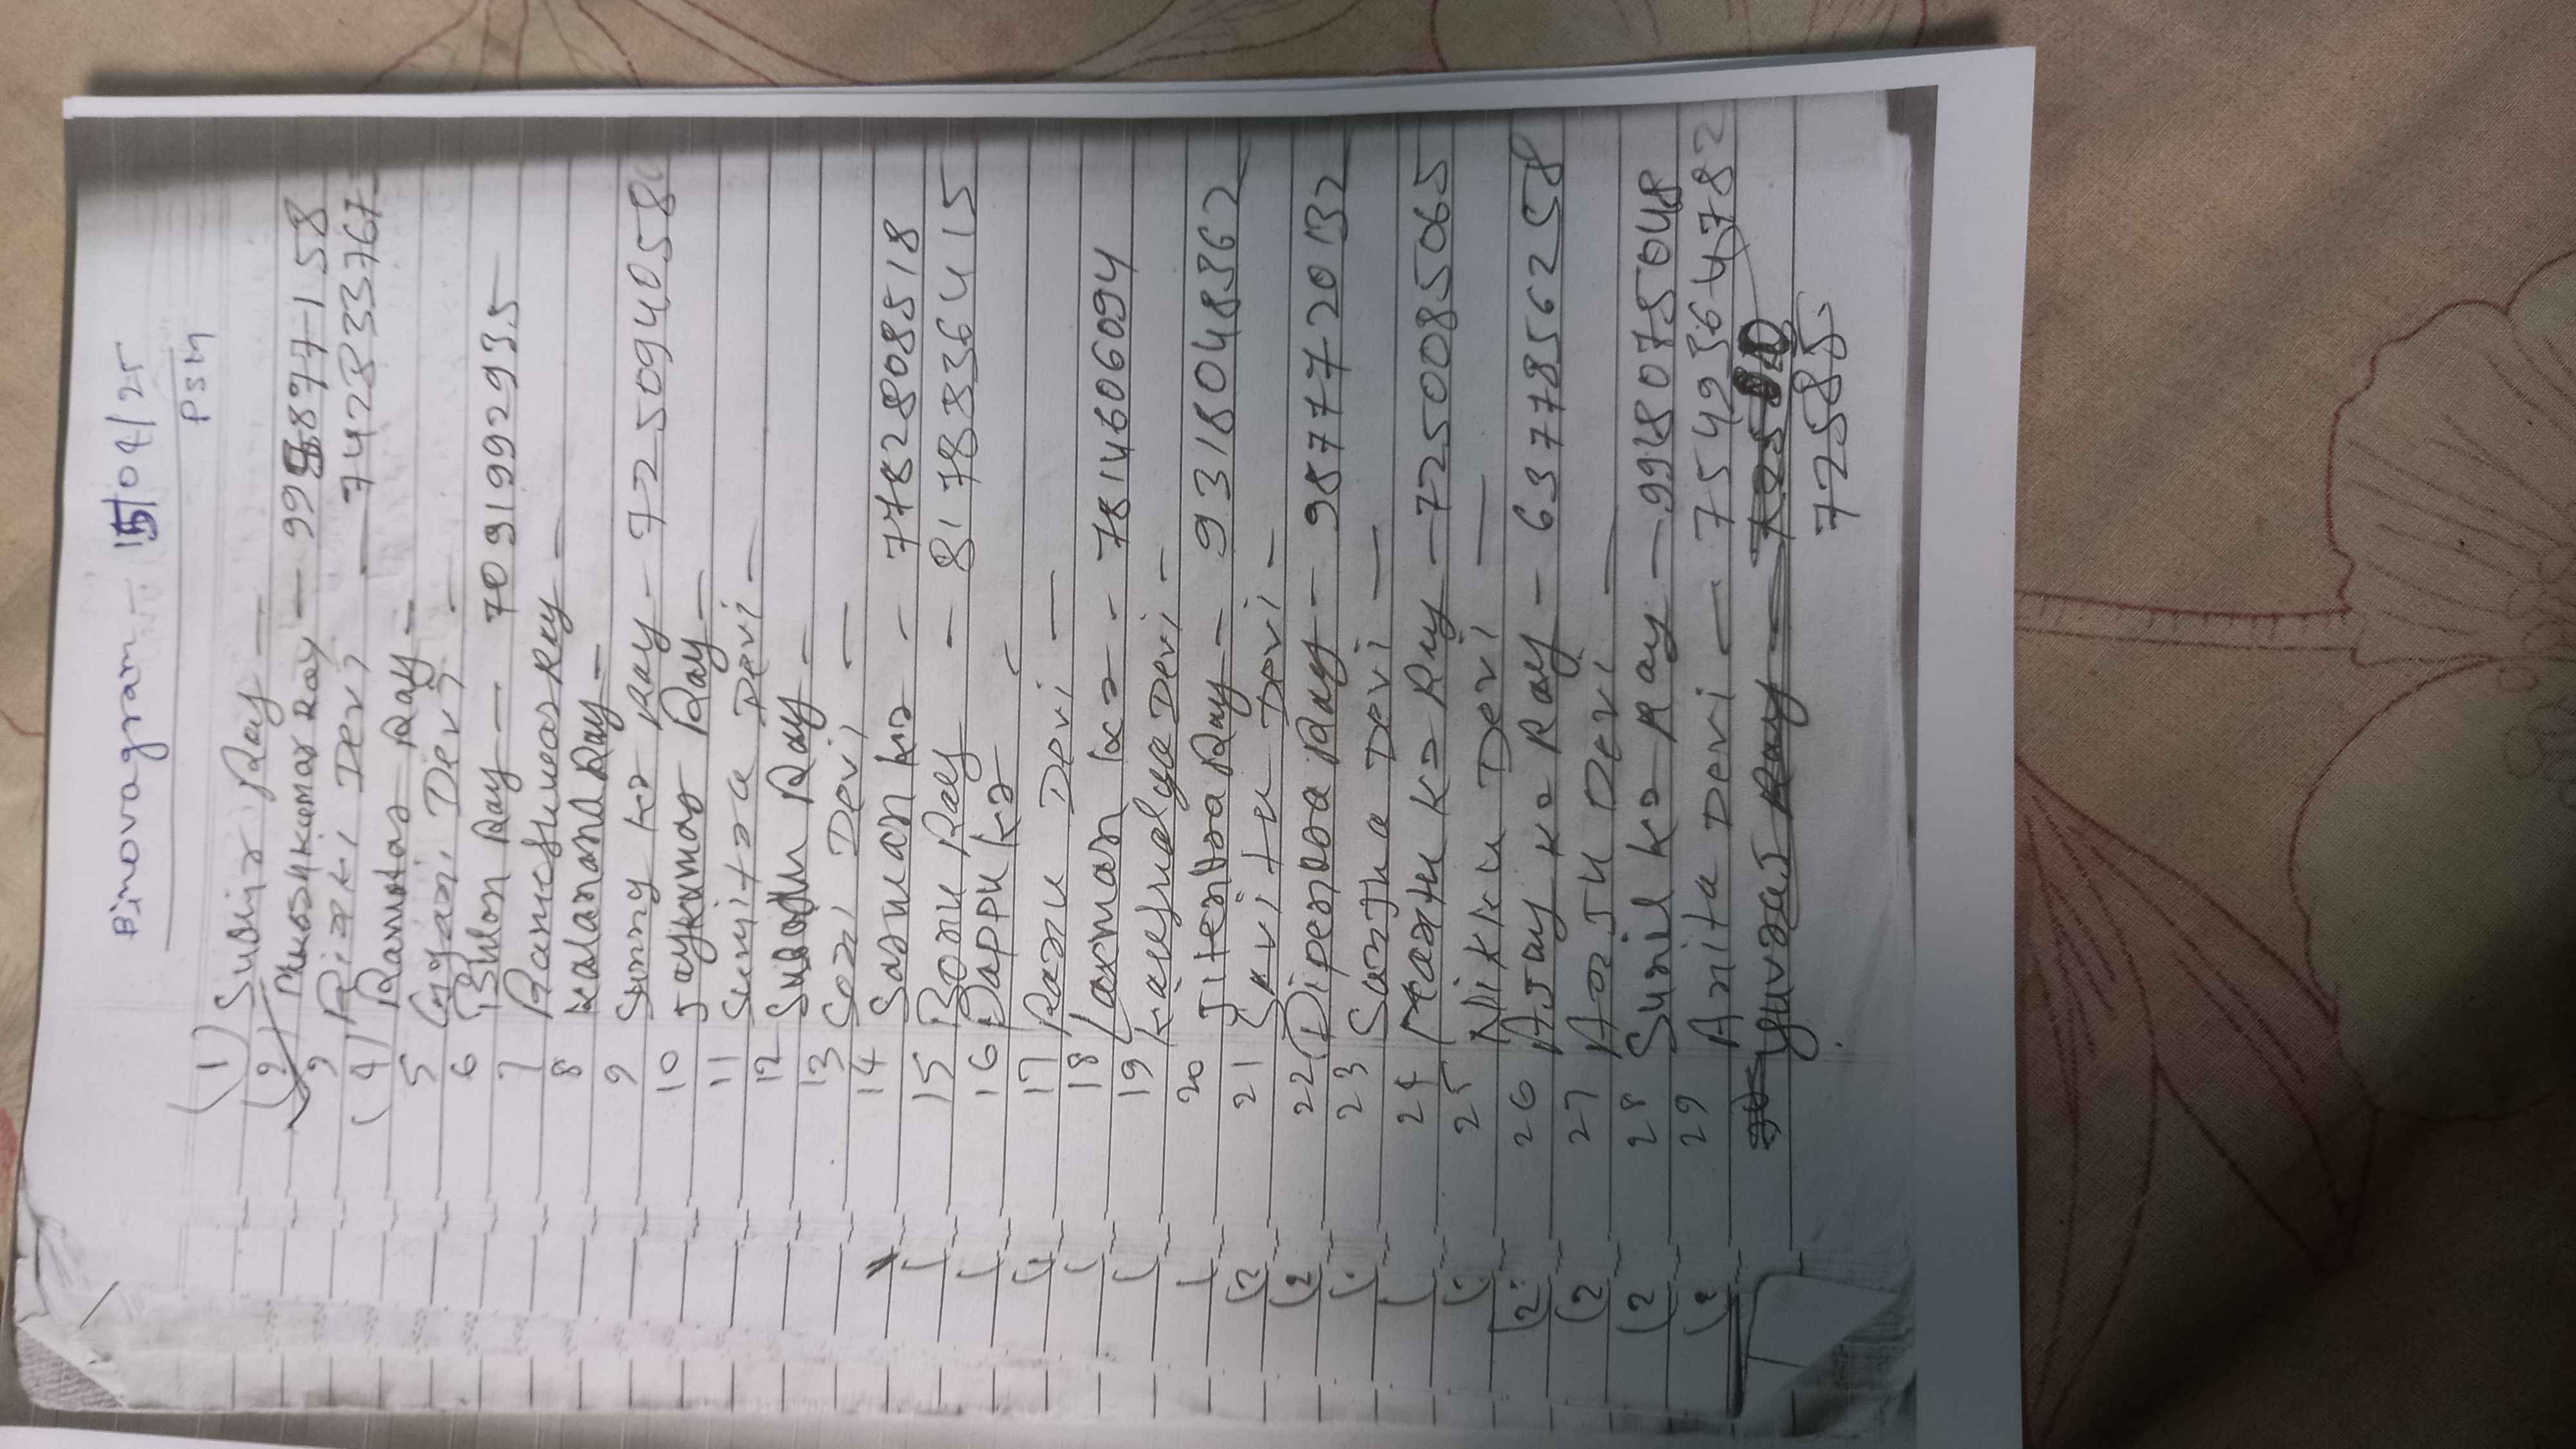 Binovagram 15/04/25
PSM
(1) Subir Ray —
(2) Phuoshkumar Ray — 9998877158
3 Rinki Devi — 7428333767
(4) Ramutar Ray —
5 Gyani Devi —
6 Bulon Ray — 7091992935
7 Rameshwar Ray —
8 Kalanand Ray —
9 Sunny kr Ray — 725094058
10 Jaykumar Ray —
11 Sumitra Devi —
12 Subodh Ray —
13 Soni Devi —
14 Sarman kr - 7782808518
15 Bonu Ray - 8178336415
16 Pappu kr
17 Ranu Devi —
18 Laxman kr - 7814606094
19 Devi -
20 Jitendra Ray — 9318048362
21 Savitu Devi -
22 Dipendra Ray — 9877772013
23 Sanju a Devi —
24 kr Ray — 7250085065
25 Nikku Devi —
26 Ajay kr Ray — 6377856258
27 Anju Devi —
28 Sunil kr Ray — 9928075048
29 Anita Devi — 7549364782
Yuvraj Ray —
77585